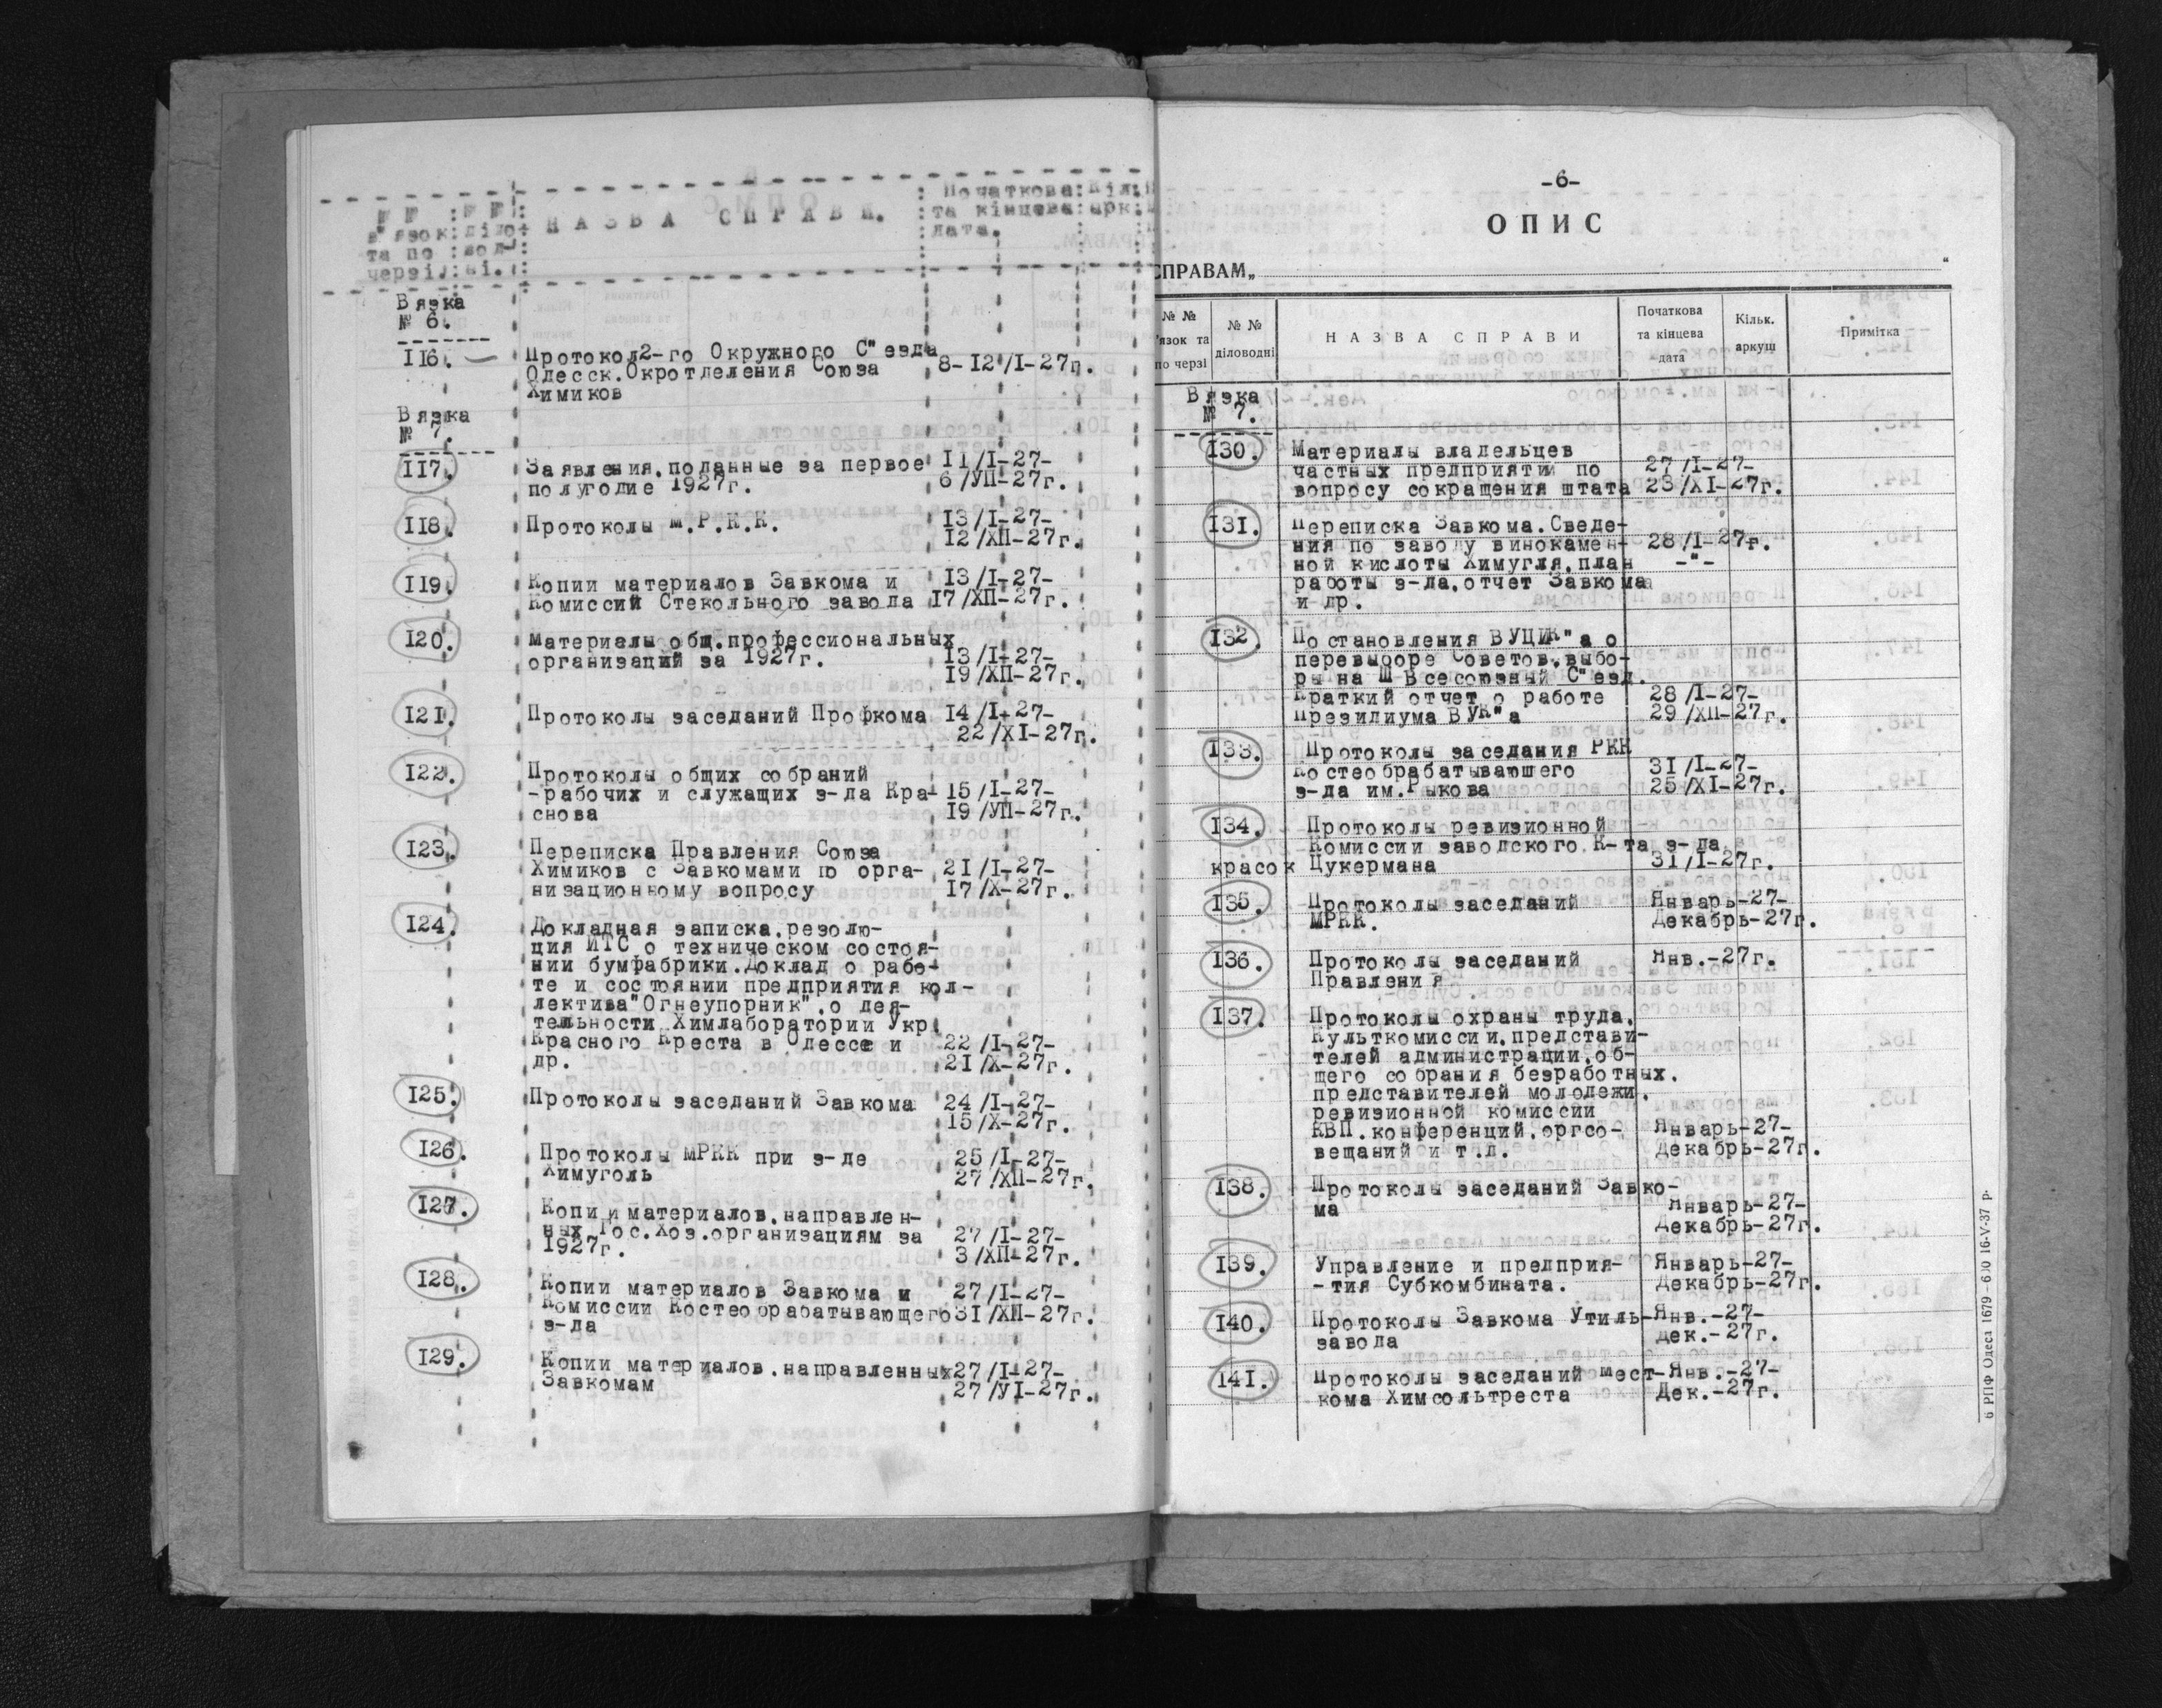 № №
в"язок
та по
черзі.
№ №
діло-
вод-
ні.
НАЗВА СПРАВИ.
Початкова
та кінцева
дата.
Кіл.
арк.
Вязка
№ 6.
II6.
Протокол 2-го Окружного С"езда
Одесск.Окротделения Союза 8-I2/I-27г.
Химиков
Вязка
№ 7.
II7. Заявления,поданные за первое II/I-27-
полугодие 1927г. 6/УП-27г.
II8. Протоколы М.Р.К.К. I3/I-27-
I2/ХП-27г.
II9. Копии материалов Завкома и I3/I-27-
Комиссий Стекольного завода I7/ХП-27г.
I20. Материалы общ.профессиональных
организаций за 1927г. I3/I-27-
I9/ХП-27г.
I2I. Протоколы заседаний Профкома I4/I-27-
22/XI-27г.
I22. Протоколы общих собраний
-рабочих и служащих з-да Кра- I5/I-27-
снова I9/УП-27г.
I23. Переписка Правления Союза
Химиков с Завкомами по орга- 2I/I-27-
низационному вопросу I7/X-27г.
I24. Докладная записка,резолю-
ция ИТС о техническом состоя-
нии бумфабрики.Доклад о рабо-
те и состоянии предприятия кол-
лектива"Огнеупорник",о дея-
тельности Химлаборатории Укр.
Красного Креста в Одессе и 22/I-27-
др. 2I/X-27г.
I25. Протоколы заседаний Завкома 24/I-27-
I5/X-27г.
I26. Протоколы МРКК при з-де 25/I-27-
Химуголь 27/ХП-27г.
I27. Копии материалов,направлен-
ных Гос.Хоз.организациям за 27/I-27-
1927г. 3/ХП-27г.
I28. Копии материалов Завкома и 27/I-27-
Комиссии Костеобрабатывающего 3I/ХП-27г.
з-да
I29. Копии материалов,направленных 27/I-27-
Завкомам 27/УI-27г.
-6-
ОПИС
СПРАВАМ„ “
№ №
'язок та
по черзі
№ №
діловодні
НАЗВА СПРАВИ
Початкова
та кінцева
дата
Кільк.
аркуш
Примітка
Вязка
№ 7.
I30. Материалы владельцев
частных предприятий по 27/I-27-
вопросу сокращения штата 23/XI-27г.
I3I. Переписка Завкома.Сведе-
ния по заводу винокамен- 28/I-27г.
ной кислоты Химугля,план -"-
работы з-да,отчет Завкома
и др.
I32. Постановления ВУЦИК"а о
перевыборе Советов,выбо-
ры на Ш Всесоюзный С"езд.
Краткий отчет о работе 28/I-27-
Президиума ВУК"а 29/ХП-27г.
I33. Протоколы заседания РКК
Костеобрабатывающего 3I/I-27-
з-да им.Рыкова 25/XI-27г.
I34. Протоколы ревизионной
Комиссии заводского К-та з-да
красок Цукермана 3I/I-27г.
I35. Протоколы заседаний Январь-27-
МРКК. Декабрь-27г.
I36. Протоколы заседаний Янв.-27г.
Правления
I37. Протоколы охраны труда,
Культкомиссии,представи-
телей администрации,об-
щего собрания безработных,
представителей молодежи,
ревизионной комиссии
КВП.конференций,оргсо- Январь-27-
вещаний и т.д. Декабрь-27г.
I38. Протоколы заседаний Завко-
ма Январь-27-
Декабрь-27г.
I39. Управление и предприя- Январь-27-
-тия Субкомбината. Декабрь-27г.
I40. Протоколы Завкома Утиль- Янв.-27-
завода Дек.-27г.
I4I. Протоколы заседаний Мест- Янв.-27-
кома Химсольтреста Дек.-27г.
6 РПФ Одеса 1679 - 600 16-V-37 р.